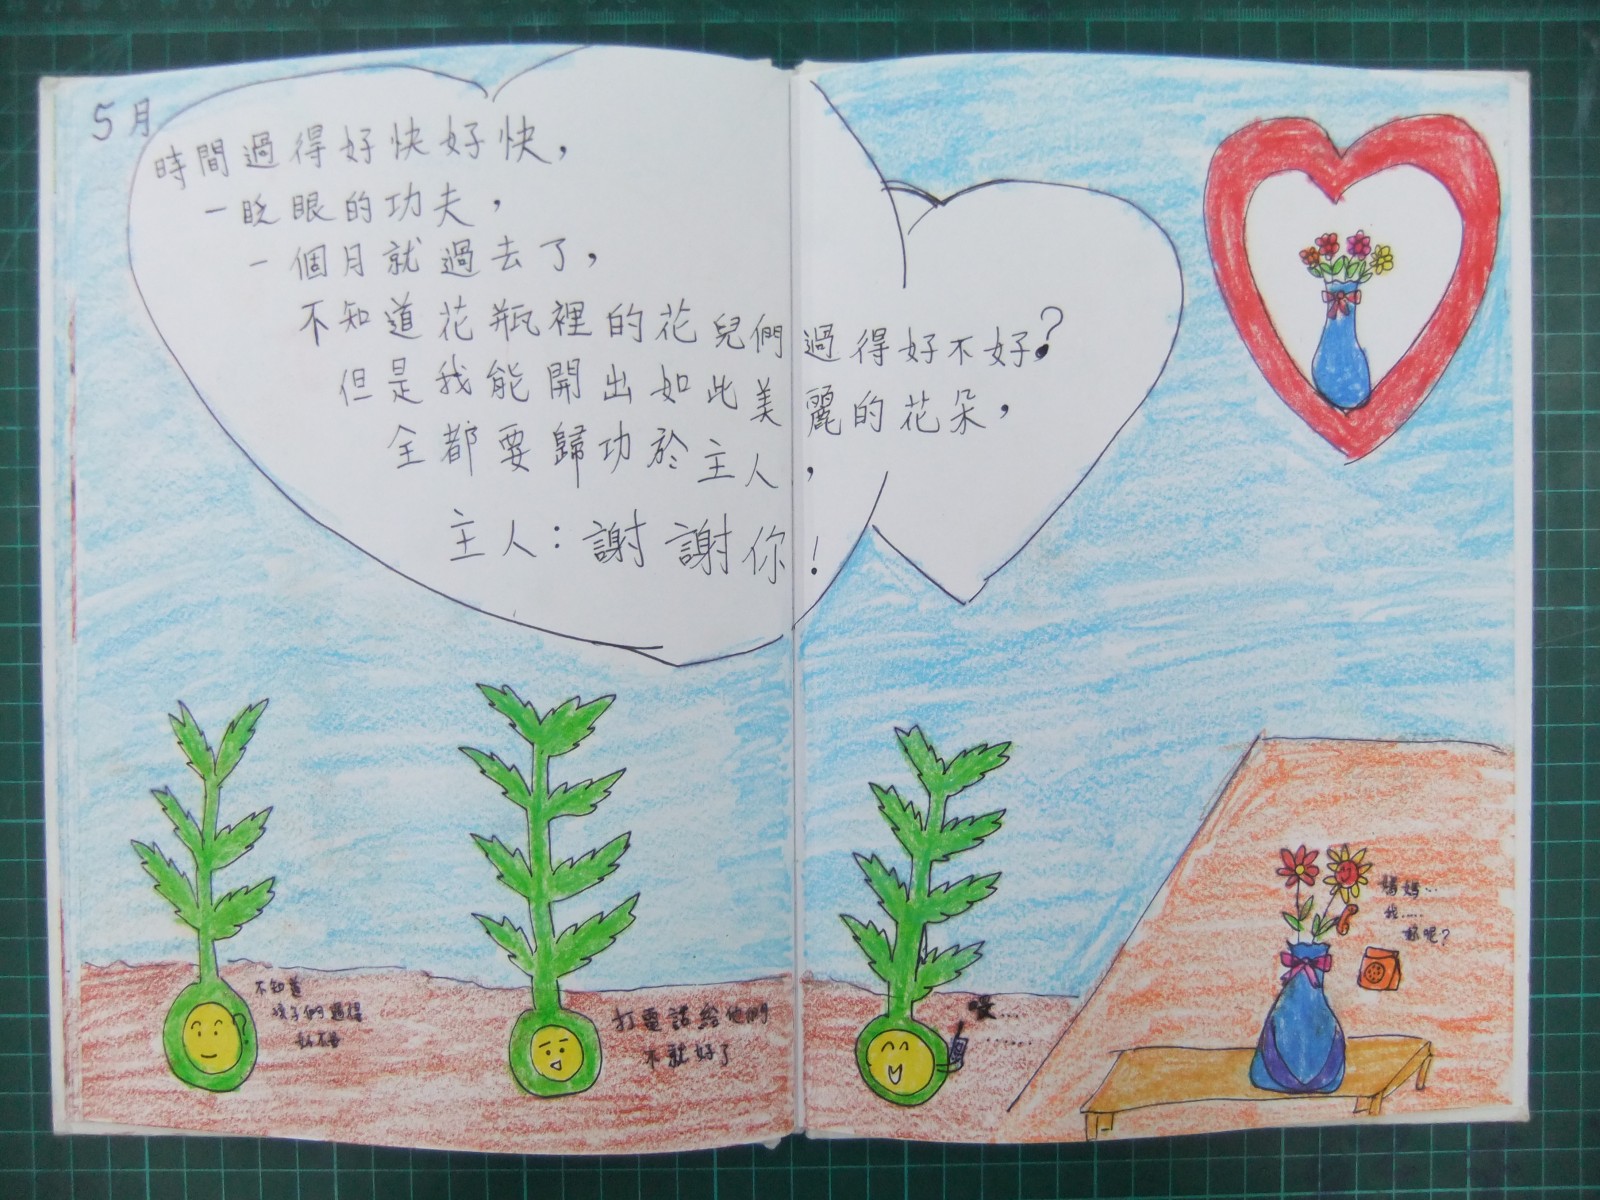 5月
時間過得好快好快，
一眨眼的功夫，
一個月就過去了，
不知道花瓶裡的花兒們過得好不好？
但是我能開出如此美麗的花朵，
全都要歸功於主人，
主人：謝謝你！
不知道
孩子們過得
好不
打電話給他們
不就好了
喂...
......
媽媽...
我.....
您呢？